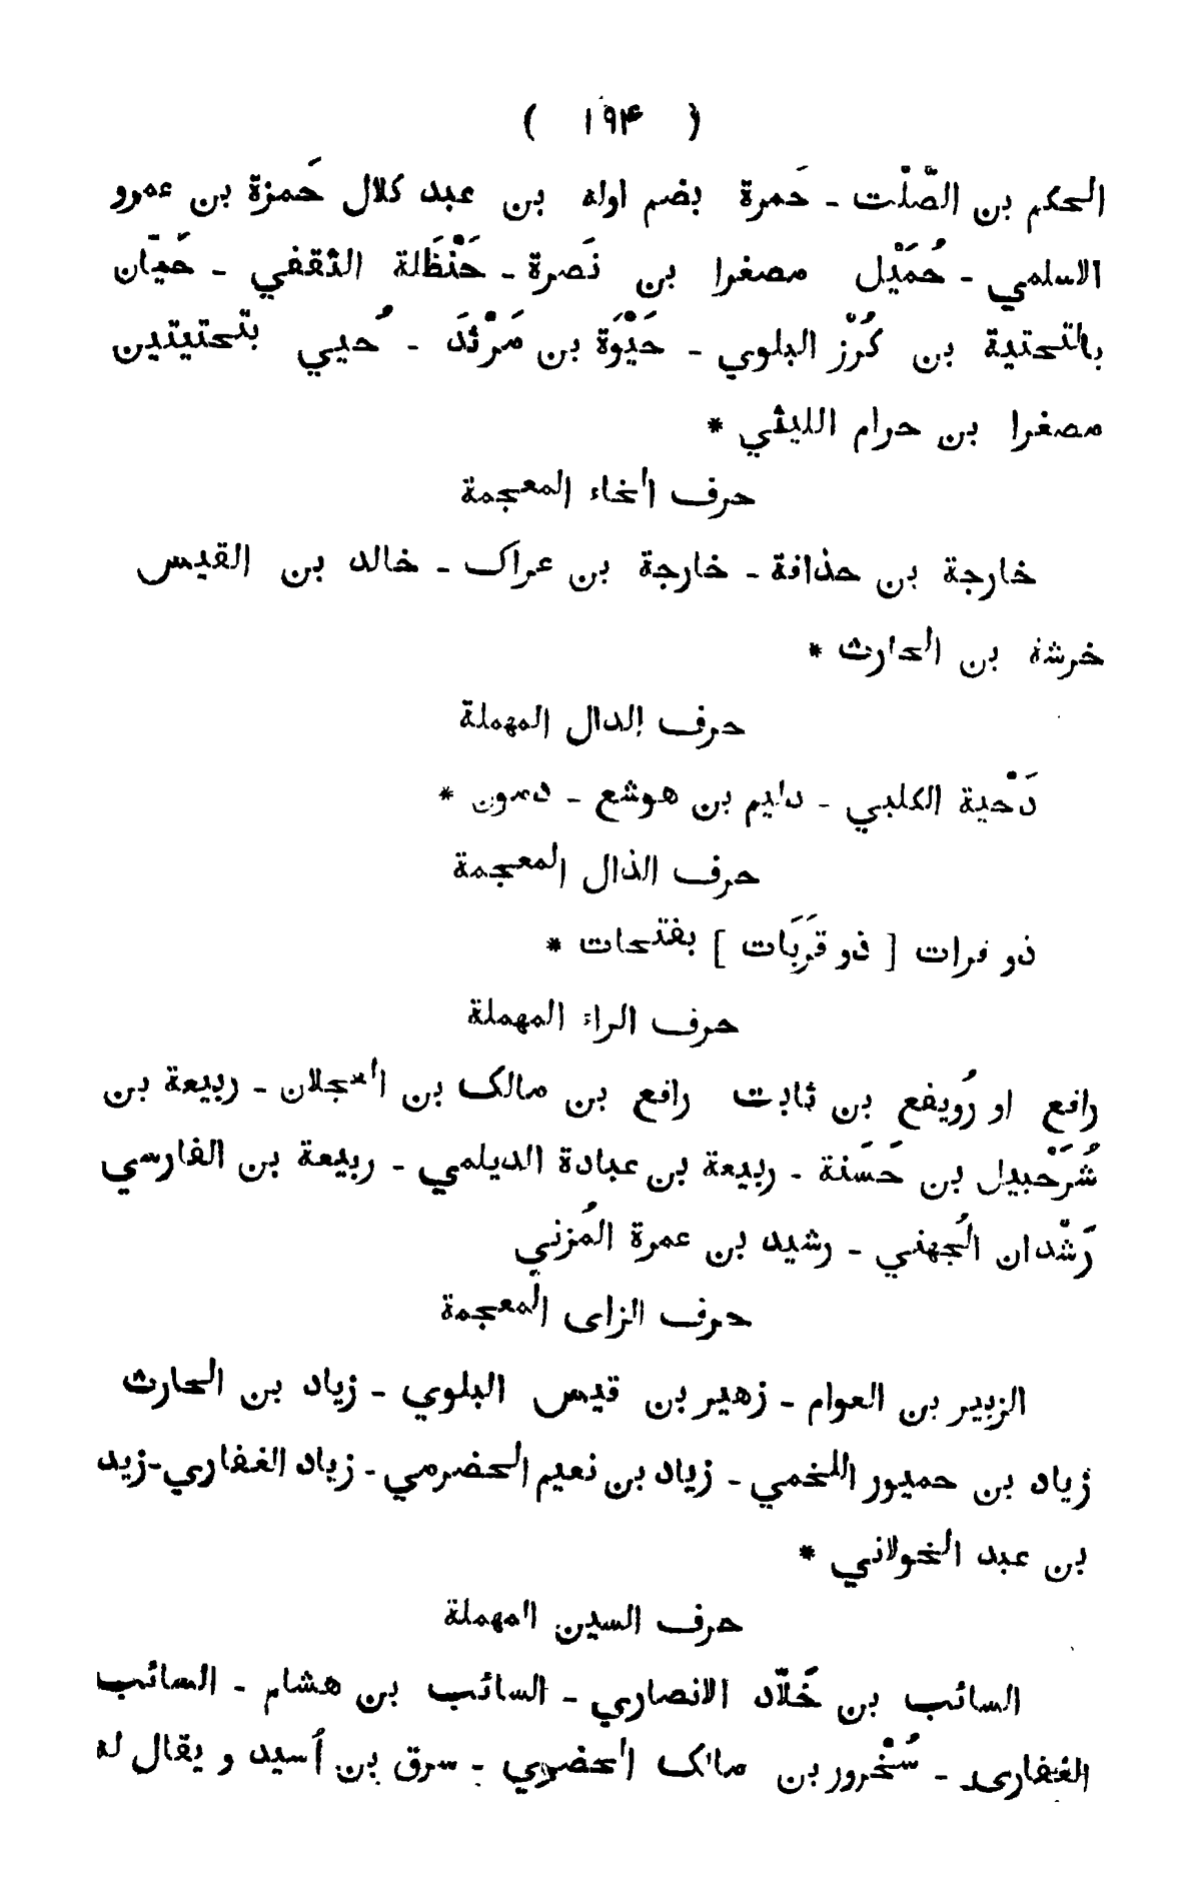 ( ١٩۴ )
الحكم بن الصَّلْت - حَمرة بضم اوله بن عبد كلال حَمزة بن عمرو
الاسلمي - حُمَيْل مصغرا بن نَصرة - حَنْظَلة الثقفي - حَيّان
بالتحتية بن كُرْز البلوي - حَيْوَة بن مَرْثَد - حُيي بتحتيتين
مصغرا بن حرام الليثي *
حرف الخاء المعجمة
خارجة بن حذافة - خارجة بن عراك - خالد بن القيس
خرشة بن الحارث *
حرف الدال المهملة
دَحْية الكلبي - دليم بن هوشع - دمون *
حرف الذال المعجمة
ذو قرات [ ذو قَرَبَات ] بفتحات *
حرف الراء المهملة
رافع او رُويفع بن ثابت رافع بن مالك بن العجلان - ربيعة بن
شُرَحْبيل بن حَسَنة - ربيعة بن عبادة الديلمي - ربيعة بن الفارسي
رَشْدان الجُهني - رشيد بن عمرة المُزني
حرف الزاى المعجمة
الزبير بن العوام - زهير بن قيس البلوي - زياد بن الحارث
زياد بن حميور اللخمي - زياد بن نعيم الحضرمي - زياد الغفاري - زيد
بن عبد الخولاني *
حرف السين المهملة
السائب بن خَلّاد الانصاري - السائب بن هشام - السائب
الغفارى - سُنْخرور بن مالك الحضري - سرق بن أسيد و يقال له